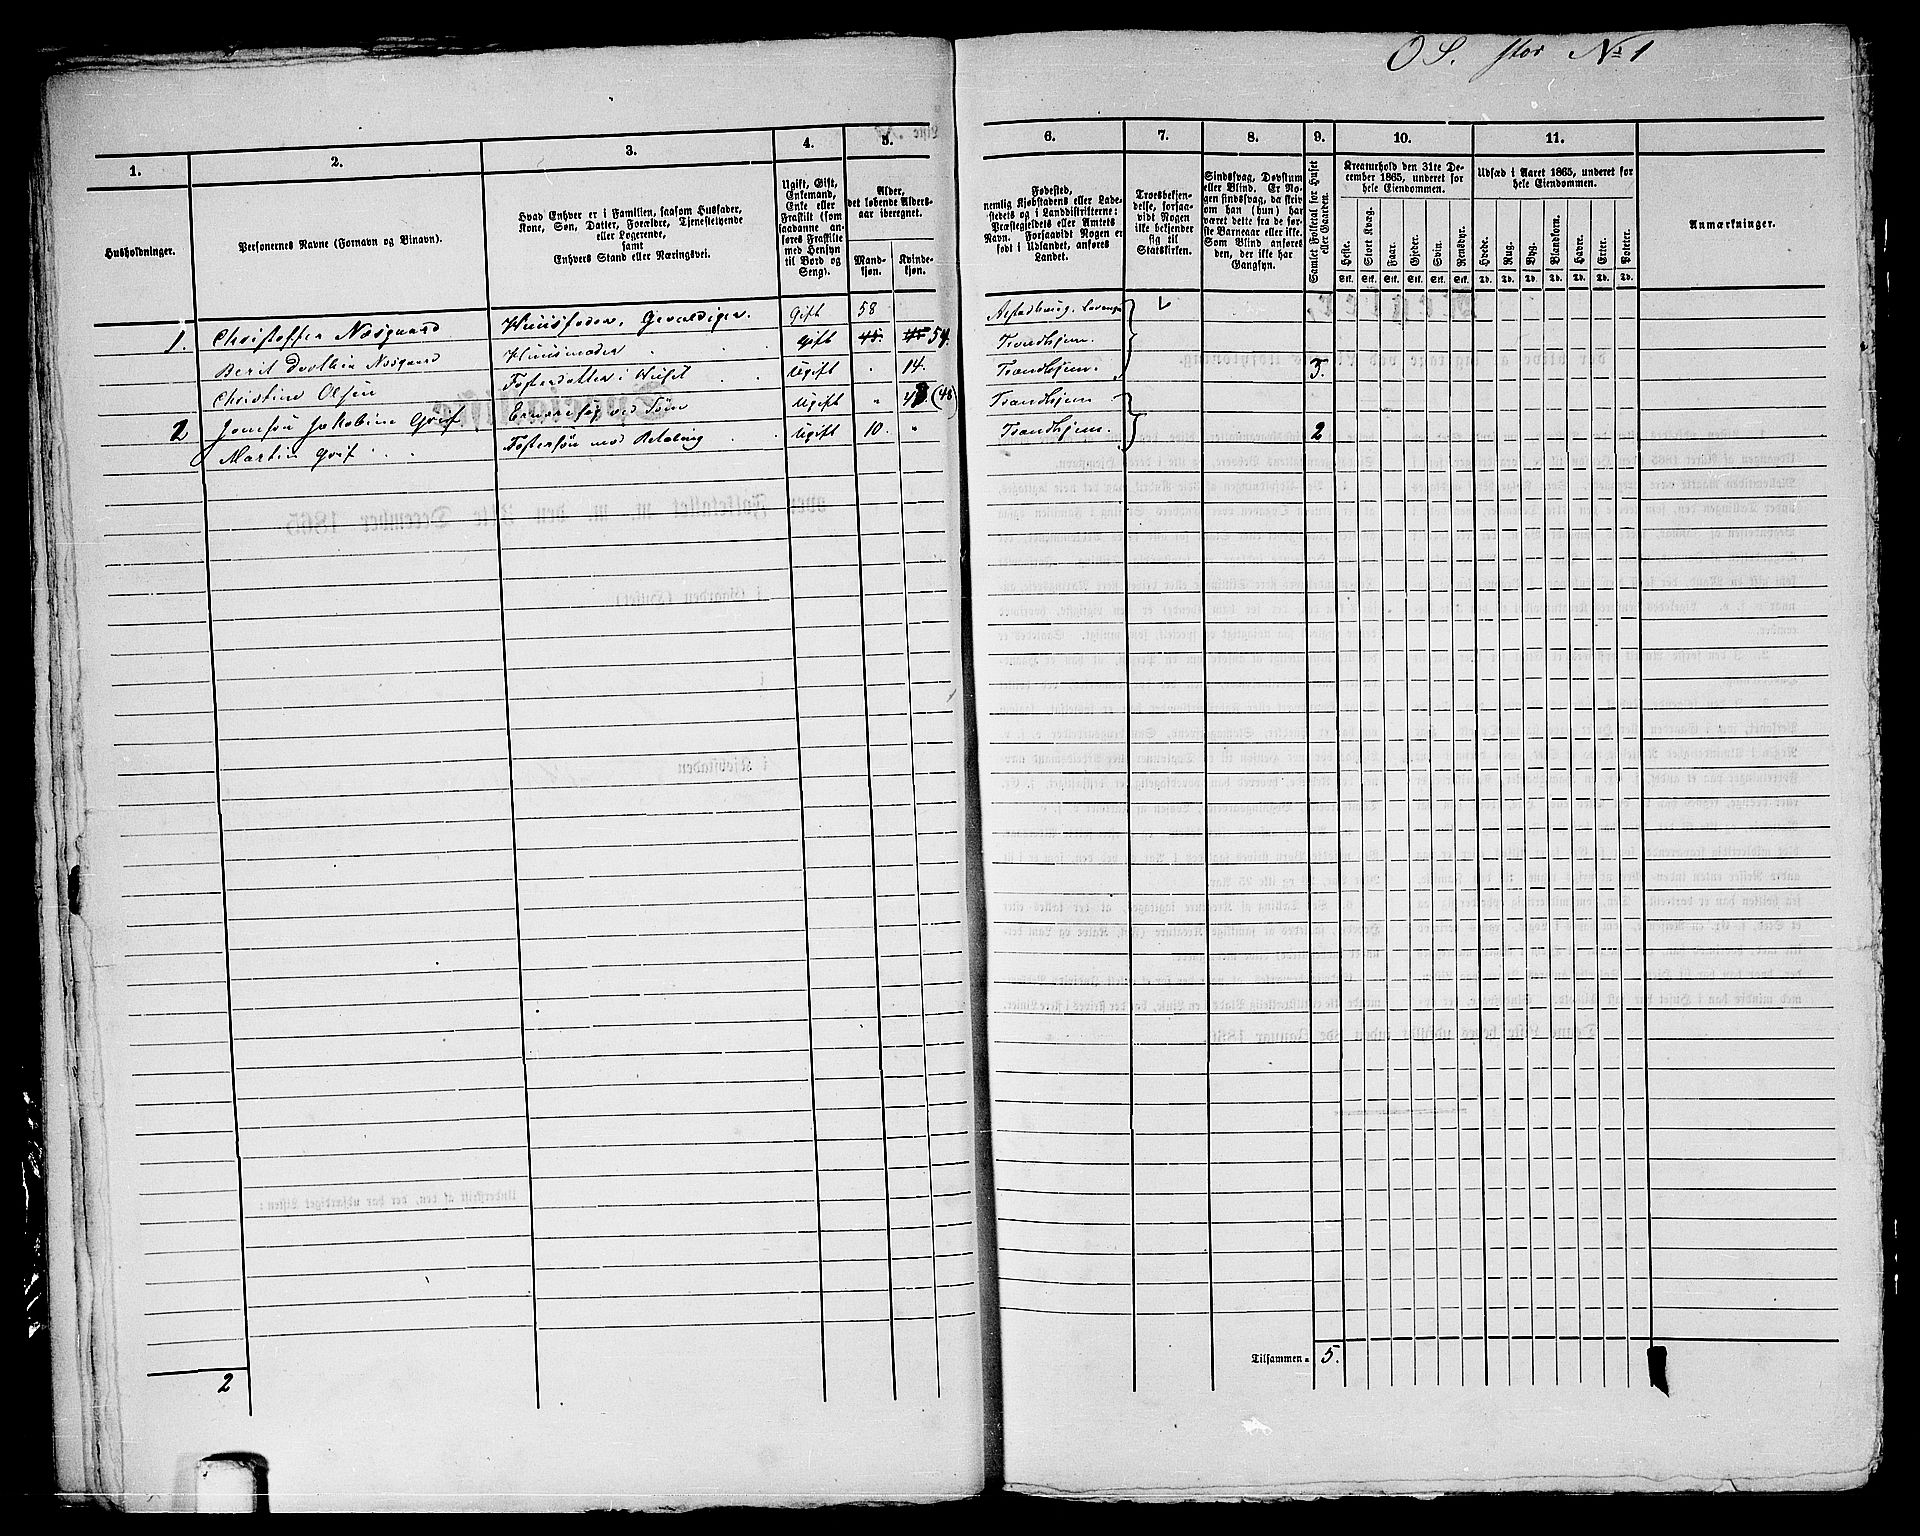 O S. stor № 1
1.
2.
3.
4.
5.
Husholdninger.
Personernes Navne (Fornavn og Binavn).
Hvad Enhver er i Familien, saasom Husfader,
Kone, Søn, Datter, Forældre, Tjenestetyende
eller Logerende,
samt
Enhvers Stand eller Næringsvei.
Ugift, Gift,
Enkemand,
Enke eller
Fraskilt (som
saadanne an-
føres Fraskilte
med Hensyn
til Bord og
Seng).
Alder,
det løbende Alders-
aar iberegnet.
Mand-
kjøn.
Kvinde-
kjøn.
6.
7.
8.
9.
10.
11.
Fødested,
nemlig Kjøbstadens eller Lade-
stedets og i Landdistrikterne:
Præstegjeldets eller Amtets
Navn. Forsaavidt Nogen er
født i Udlandet, anføres
Landet.
Troesbekjen-
delse, forsaa-
vidt Nogen
ikke bekjender
sig til
Statskirken.
Sindssvag, Døvstum
eller Blind. Er No-
gen sindssvag, da skriv
om han (hun) har
været dette fra de før-
ste Barneaar eller ikke.
Som Blind anføres
den, der ikke har
Gangsyn.
Samlet Folketal for Huset
eller Gaarden.
Kreaturhold den 31te De-
cember 1865, underet for
hele Eiendommen.
Heste.
Stort Kvæg.
Faar.
Gjeder.
Svin.
Rensdyr.
Stk. Stk. Stk. Stk. Stk. Stk.
Udsæd i Aaret 1865, underet for
hele Eiendommen.
Hvede.
Rug.
Byg.
Blandkorn.
Havre.
Erter.
Poteter.
Td. Td. Td. Td. Td. Td. Td.
Anmærkninger.
1. Christoffer Nøsgaard Huusfader, Gevaldiger. Gift 58 Levanger
Berit Dorthea Nøsgaard Huusmoder gift 45. 54. Trondhjem.
Christine Olsen Fosterdatter i Huset Ugift 14. Trondhjem. 3.
2 Jakobine Grif Ugift (48) Trondhjem
Martin Grif Fostersøn mod Betaling Ugift 10. Trondhjem. 2
2
Tilsammen 5.